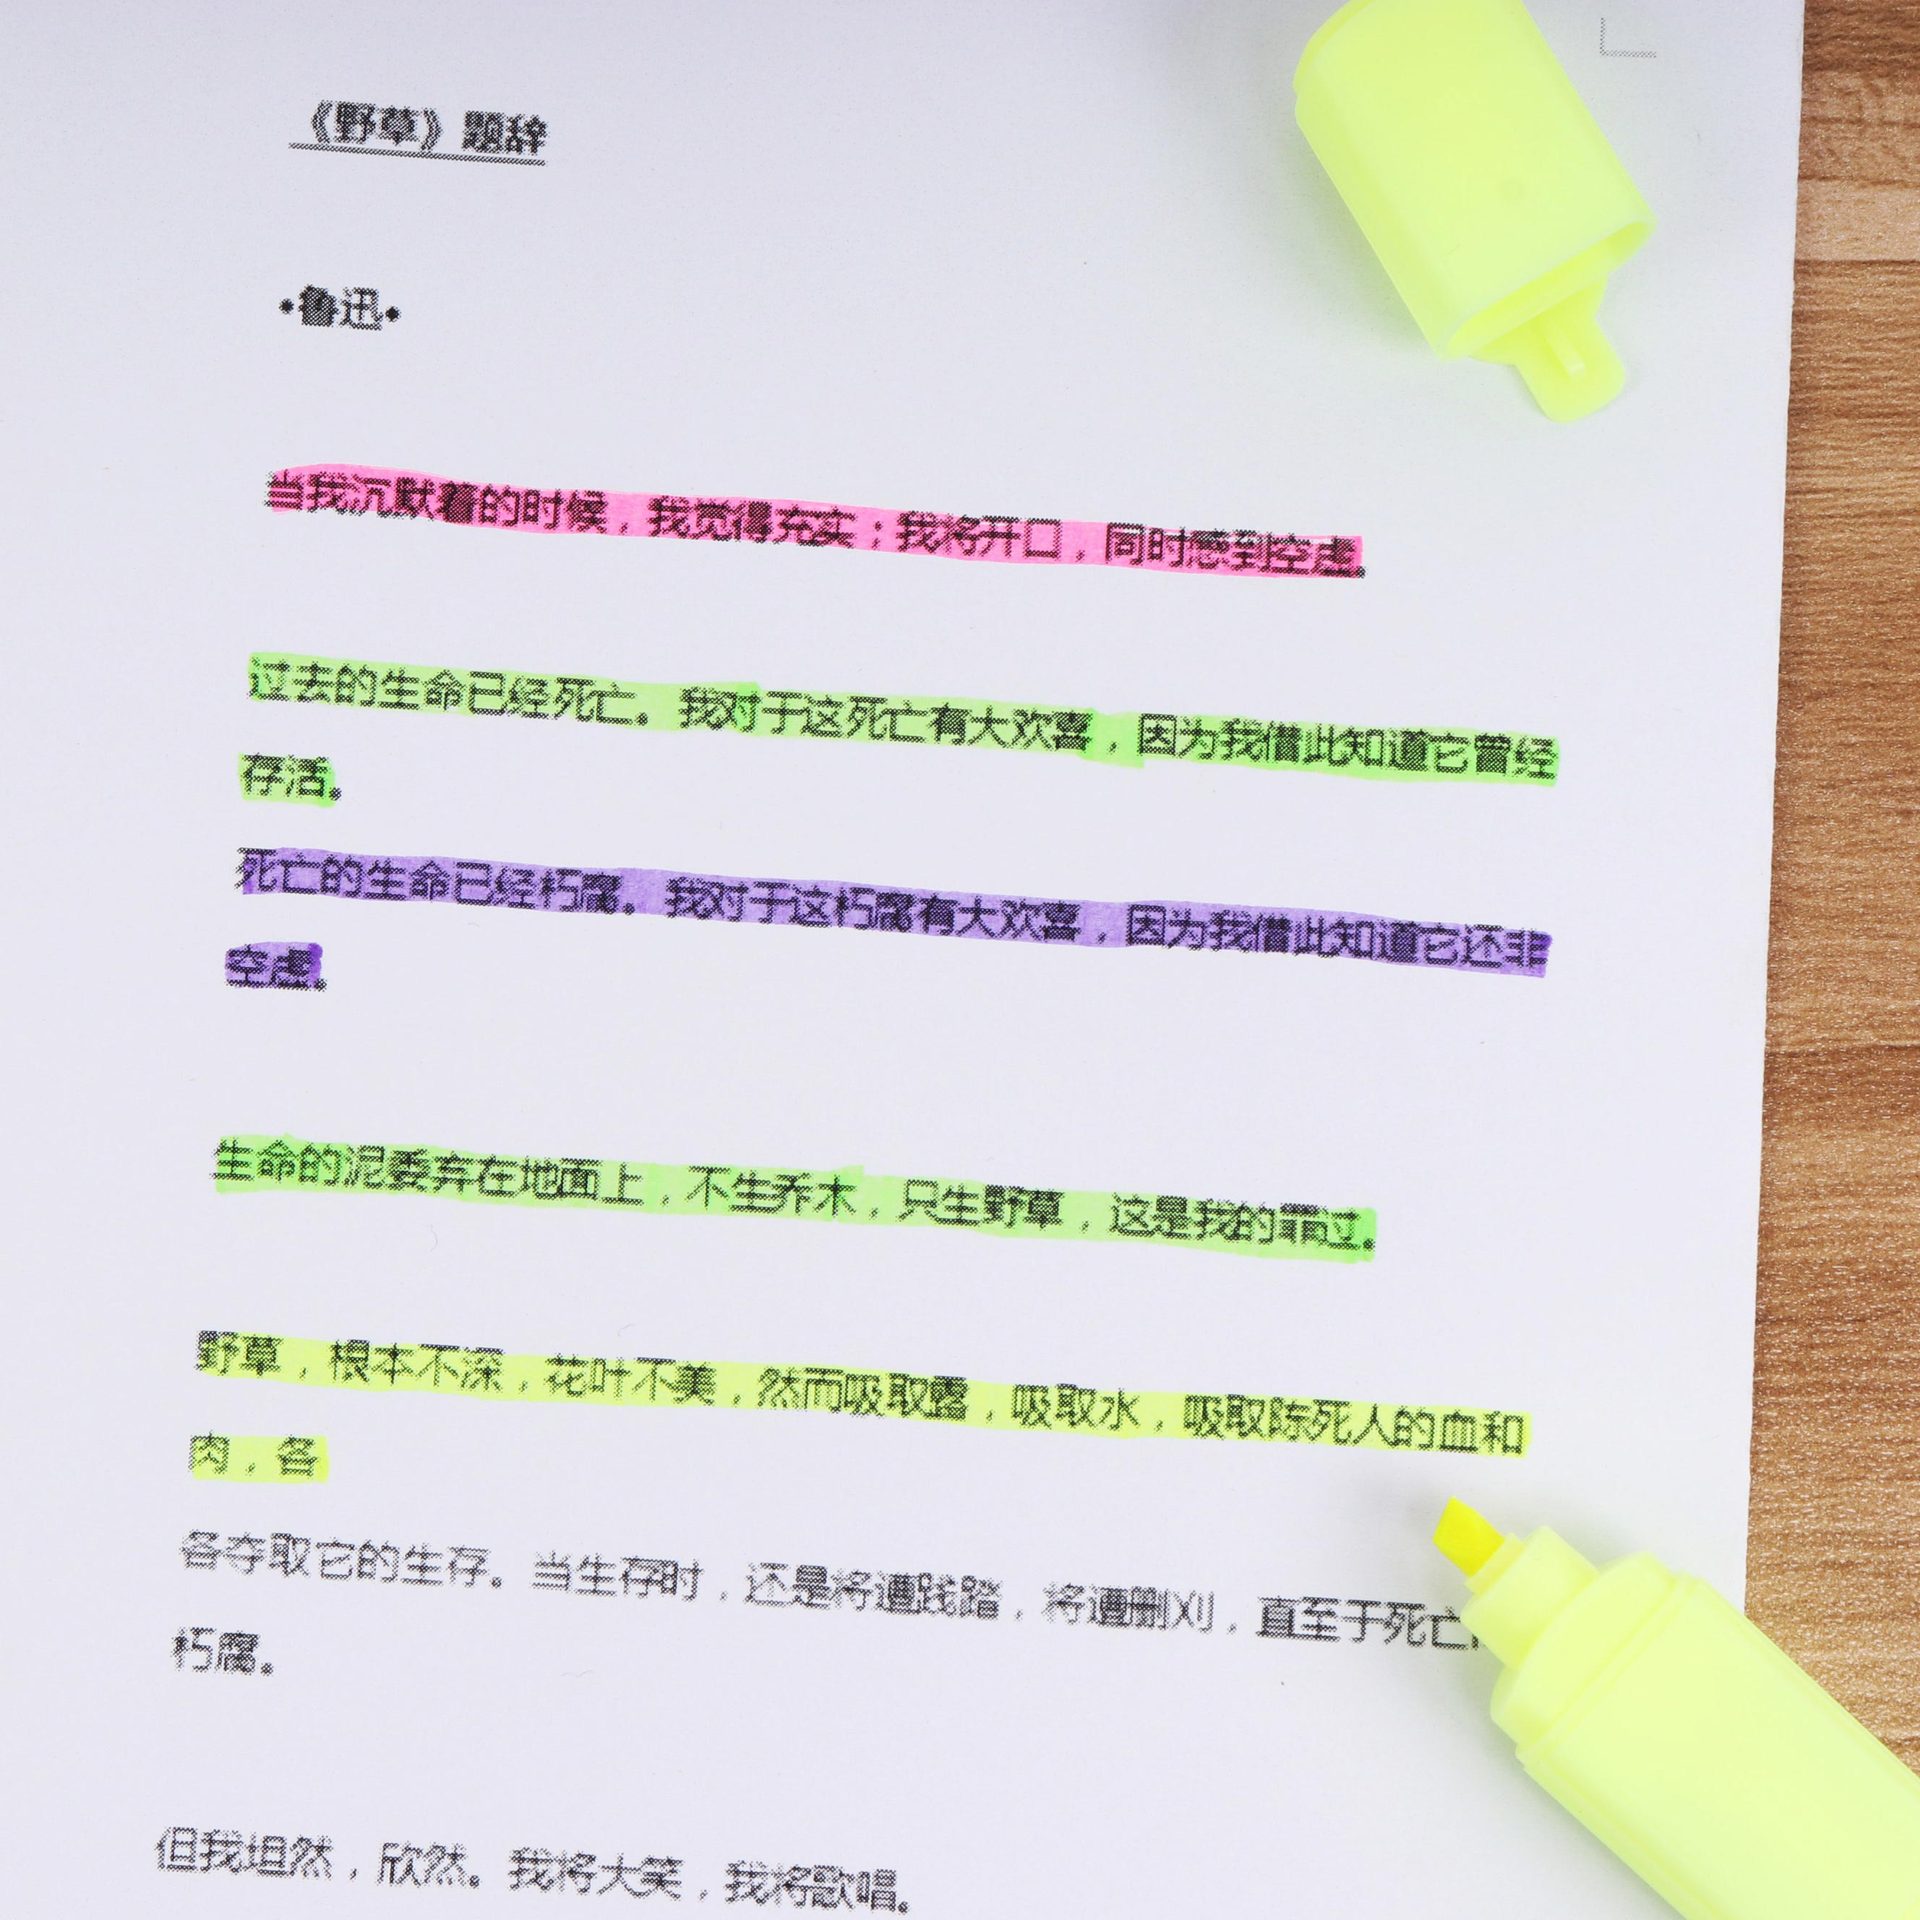 《野草》题辞
•鲁迅•
当我沉默着的时候，我觉得充实；我将开口，同时感到空虚。
过去的生命已经死亡。我对于这死亡有大欢喜，因为我借此知道它曾经
存活。
死亡的生命已经朽腐。我对于这朽腐有大欢喜，因为我借此知道它还非
空虚。
生命的泥委弃在地面上，不生乔木，只生野草，这是我的罪过。
野草，根本不深，花叶不美，然而吸取露，吸取水，吸取陈死人的血和
肉，各
各夺取它的生存。当生存时，还是将遭践踏，将遭删刈，直至于死亡
朽腐。
但我坦然，欣然。我将大笑，我将歌唱。